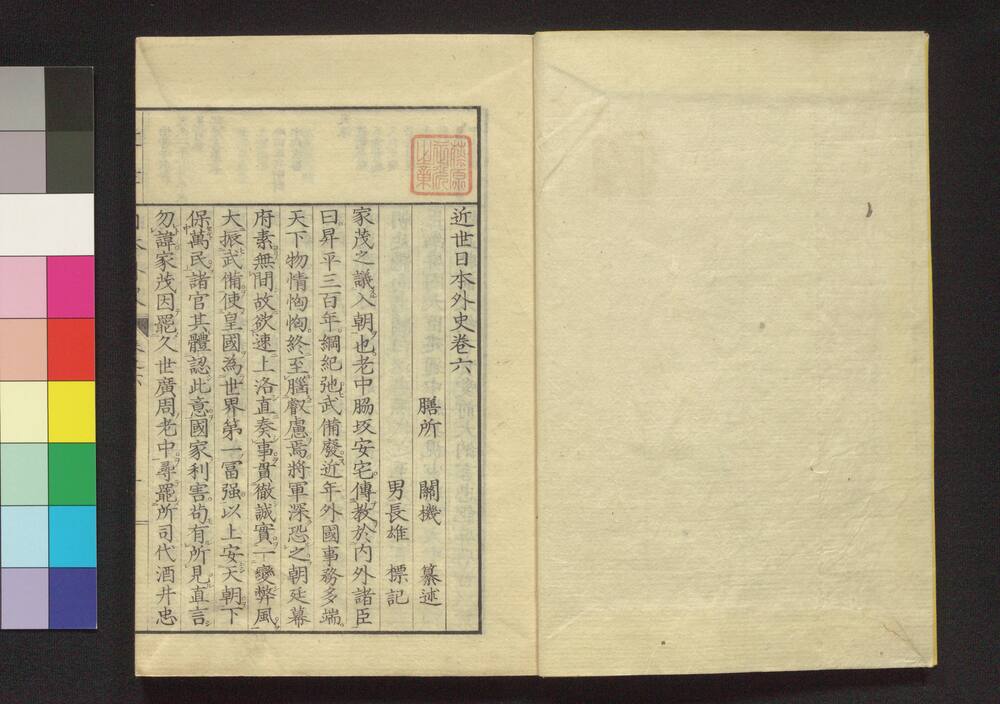 近世日本外史卷六
膳所 關機 纂述
男長雄 標記
家茂之議入朝也老中脇坂安宅傳教於內外諸臣
曰昇平三百年綱紀弛武備廢近年外國事務多端
天下物情恟恟終至腦叡慮焉將軍深恐之朝廷幕
府素無間故欲速上洛直奏事貫徹誠實一變弊風
大振武備使皇國為世界第一冨强以上安天朝下
保萬民諸官其體認此意國家利害苟有所見直言
勿諱家茂因罷久世廣周老中尋罷所司代酒井忠